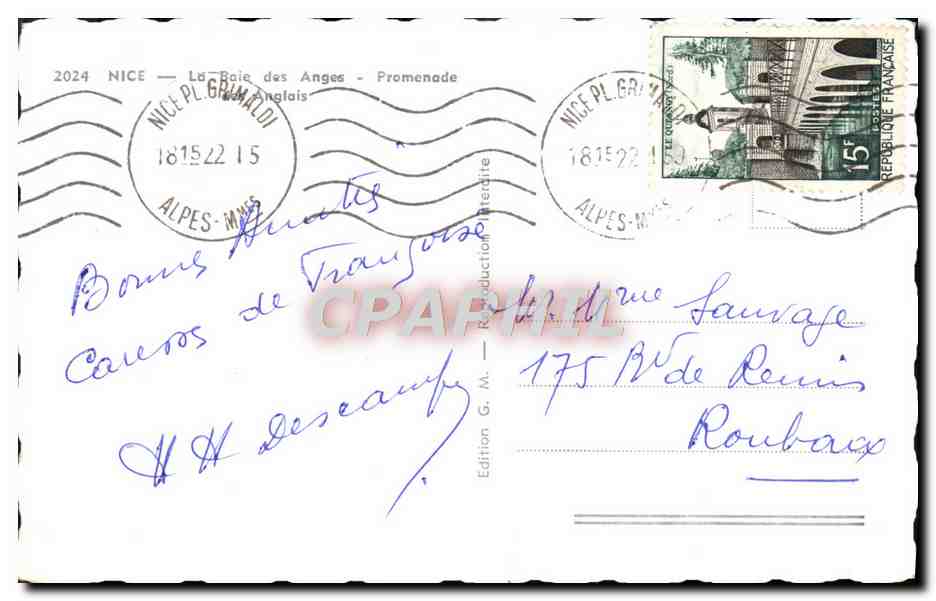 2024 NICE — La Baie des Anges - Promenade
des Anglais
NICE PL. GRIMALDI
181522 15
ALPES-Mmes
NICE PL. GRIMALDI
181522
ALPES-Mmes
LE QUESNOY (NORD)
15F
POSTES
REPUBLIQUE FRANÇAISE
Bonnes Amitiés
Caresses de Françoise
HH Descamps
Edition G. M. — Reproduction Interdite
CPAPHIL
M. Mme Sauvage
175 Bd de Reims
Roubaix